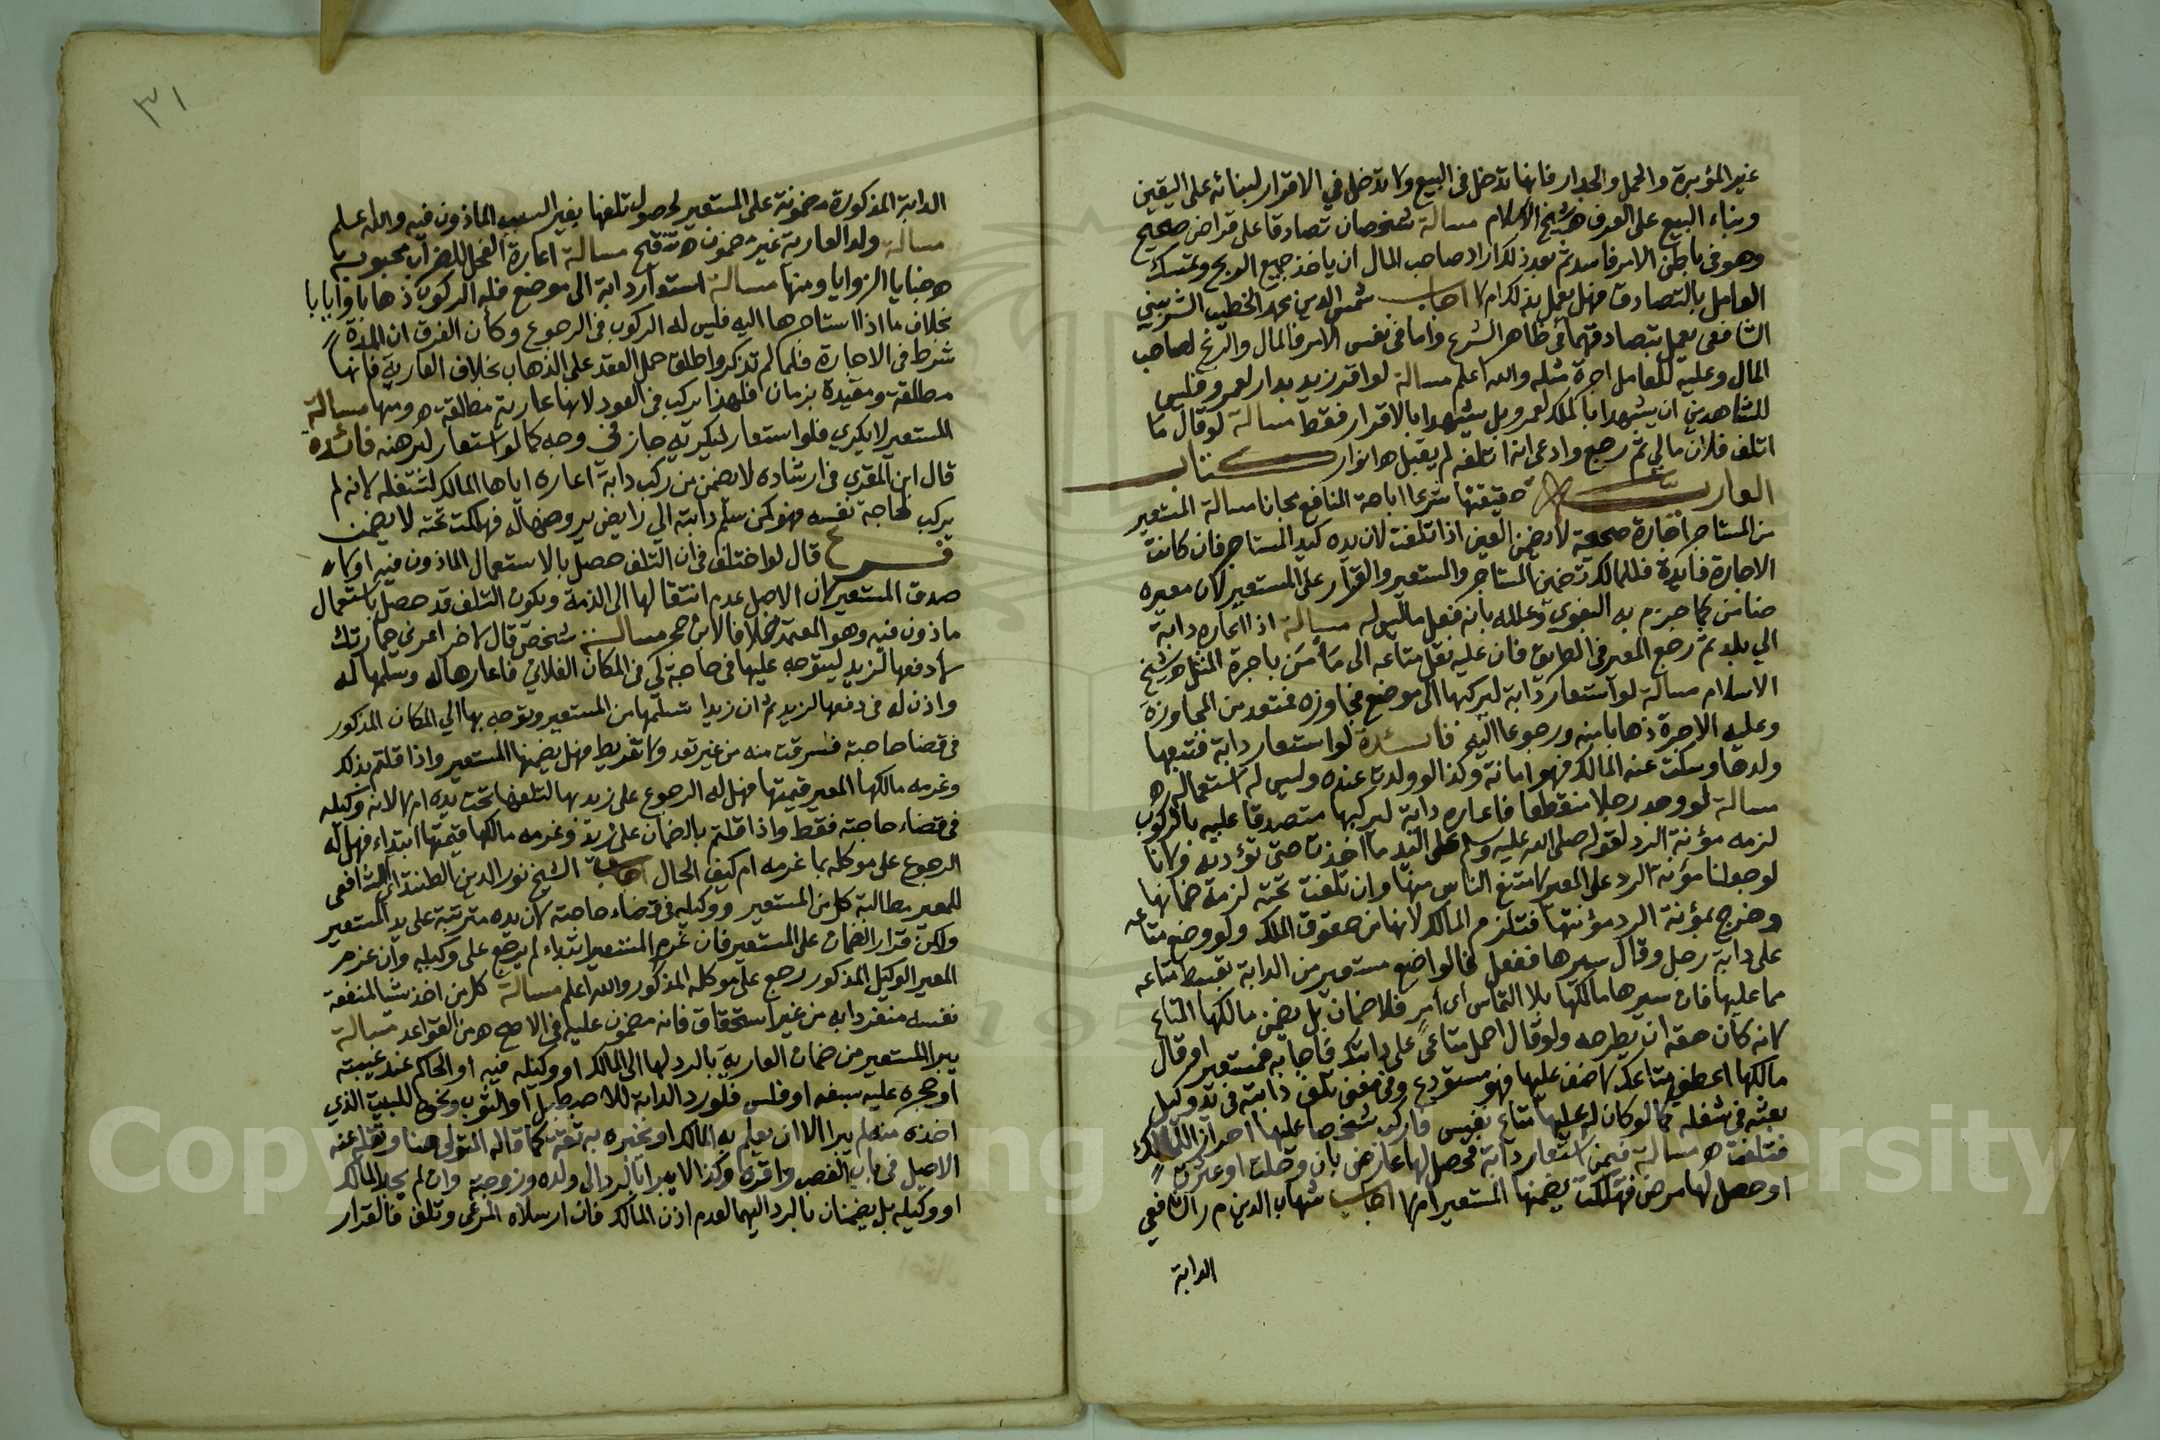 غير المؤبرة والحمل والجدار فانها تدخل في البيع ولا تدخل في الاقرار لبنائه على اليقين
وبناء البيع على العرف ه شيخ الاسلام مسالة شخصان تصادقا على قراض صحيح
وهو في باطن الامر فاسد ثم بعد ذلك اراد صاحب المال ان ياخذ جميع الربح وتمسك
العامل بالتصادق فهل يعمل بذلك ام لا اجاب شمس الدين محمد الخطيب الشربيني
الشافعي يعمل بتصادقهما في ظاهر الشرع واما في نفس الامر فالمال والربح لصاحب
المال وعليه للعامل اجرة مثله والله اعلم مسالة لو اقر زيد بدار لعمرو فليس
للشاهدين ان يشهدا بالملك لعمرو بل يشهدا بالاقرار فقط مسالة لو قال ما
اتلف فلان مالي ثم رجع وادعى انه اتلفه لم يقبل ه انوار كتاب
العارية حقيقتها شرعا اباحة المنافع مجانا مسالة المستعير
من المستاجر اجارة صحيحة لا يضمن العين اذا تلفت لان يده كيد المستاجر فان كانت
الاجارة فاسدة فللمالك تضمين المستاجر والمستعير والقرار على المستعير لان معيره
ضامن كما جزم به البغوي وعلله بانه فعل ما ليس له مسالة اذا اعاره دابة
الي بلد ثم رجع المعير في الطريق فان عليه نقل متاعه الى مأمن باجرة المثل ه شيخ
الاسلام مسالة لو استعار دابة ليركبها الى موضع فجاوزه فمتعد من المجاوزة
وعليه الاجرة ذهابا منه ورجوعا اليه فائدة لو استعار دابة فتبعها
ولدها وسكت عنه المالك فهو امانة وكذا لو ولدت عنده وليس له استعماله ه
مسالة لو وجد رجلا منقطعا فاعاره دابة ليركبها متصدقا عليه بالركوب
لزمه مؤنة الرد لقوله صلى الله عليه وسلم على اليد ما اخذت حتى تؤديه ولانا
لو جعلنا مؤنة الرد على المعير لامتنع الناس منها وان تلفت تحته لزمه ضمانها
وخرج بمؤنة الرد مؤنتها فتلزم المالك لانها من حقوق الملك ولو وضع متاعه
على دابة رجل وقال سيرها ففعل فالواضع مستعير من الدابة بقسط متاعه
مما عليها فان سيرها مالكها بلا التماس اي امر فلا ضمان بل يضمن مالكها المتاع
لانه كان حقه ان يطرحه ولو قال احمل متاعي على دابتك فاجابه فمستعير او قال
مالكها اعطني متاعك لاضعه عليها فهو مستودع وفي معنى تلف دابته في يد وكيل
بعثه في شغله ما لو كان له عليها متاع نفيس فاركب شخصا عليها احرازا للمالك
فتلفت ه مسالة فيمن استعار دابة فحصل لها عارض بان وحلت او عثرت
او حصل لها مرض فهلكت يضمنها المستعير ام لا اجاب شهاب الدين م ر الشافعي
الدابة
٣١
الدابة المذكورة مضمونة على المستعير لحصول تلفها بغير السبب الماذون فيه والله اعلم
مسالة ولد العارية غير مضمون ه تنقيح مسالة اعارة الفحل للضراب محبوبة
ه خبايا الزوايا ومنها مسالة استعار دابة الى موضع فله الركوب ذهابا وايابا
بخلاف ما اذا استاجرها اليه فليس له الركوب في الرجوع وكأن الفرق ان المدة
شرط في الاجارة فلما لم تذكر واطلق حمل العقد على الذهاب بخلاف العارية فانها
مطلقة ومقيدة بزمان فلهذا يركب في العود لانها عارية مطلقة ه ومنها مسالة
المستعير لا يكري فلو استعار ليكريه جاز في وجه كما لو استعار ليرهنه فائدة
قال ابن المقري في ارشاده لا يضمن من ركب دابة اعاره اياها المالك لشغله لانه لم
يركب لحاجة نفسه فهو كمن سلم دابته الي رايض يروضها له فهلكت تحته لا يضمن
فرع قال لو اختلف في ان التلف حصل بالاستعمال الماذون فيه او لا
صدق المستعير لان الاصل عدم انتقالها الى الذمة ويكون التلف قد حصل باستعمال
ماذون فيه وهو المعتمد خلافا لابن حجر مسالة شخص قال لاخر اعرني حمارتك
لادفعها لزيد ليتوجه عليها في حاجة لي في المكان الفلاني فاعارها له وسلمها له
واذن له في دفعها لزيد ثم ان زيدا تسلمها من المستعير وتوجه بها الي المكان المذكور
في قضا حاجته فسرقت منه من غير تعد ولا تفريط فهل يضمنها المستعير واذا قلتم بذلك
وغرمه مالكها المعير قيمتها فهل له الرجوع على زيد بها لتلفها تحت يده ام لا لانه وكيله
في قضاء حاجته فقط واذا قلتم بالضمان على زيد وغرمه مالكها قيمتها ابتداء فهل له
الرجوع على موكله بما غرمه ام كيف الحال اجاب الشيخ نور الدين الطنتدائي الشافعي
للمعير مطالبة كل من المستعير ووكيله في قضاء حاجته لان يده مترتبة على يد المستعير
ولكن قرار الضمان على المستعير فان غرم المستعير ابتداء لم يرجع على وكيله وان غرم
المعير الوكيل المذكور رجع على موكله المذكور والله اعلم مسالة كل من اخذ شيا لمنفعة
نفسه منفردا به من غير استحقاق فانه مضمون عليه في الاصح ه من القواعد مسالة
يبرا المستعير من ضمان العارية بالرد لها الى المالك او وكيله فيه او الحاكم عند غيبته
او حجره عليه بسفه او فلس فلو رد الدابة للاصطبل او الثوب ونحوه للبيت الذي
اخذه منه لم يبرا الا ان يعلم به المالك او يخبره به ثقة كما قاله المتولي هنا ونقله عنه
الاصيل في باب الغصب واقره وكذا لا يبرا بالرد الى ولده وزوجته وان لم يجد المالك
او وكيله بل يضمنان بالرد اليهما لعدم اذن المالك فان ارسلاه المرعى وتلف فالقرار
Copyright © King Saud University